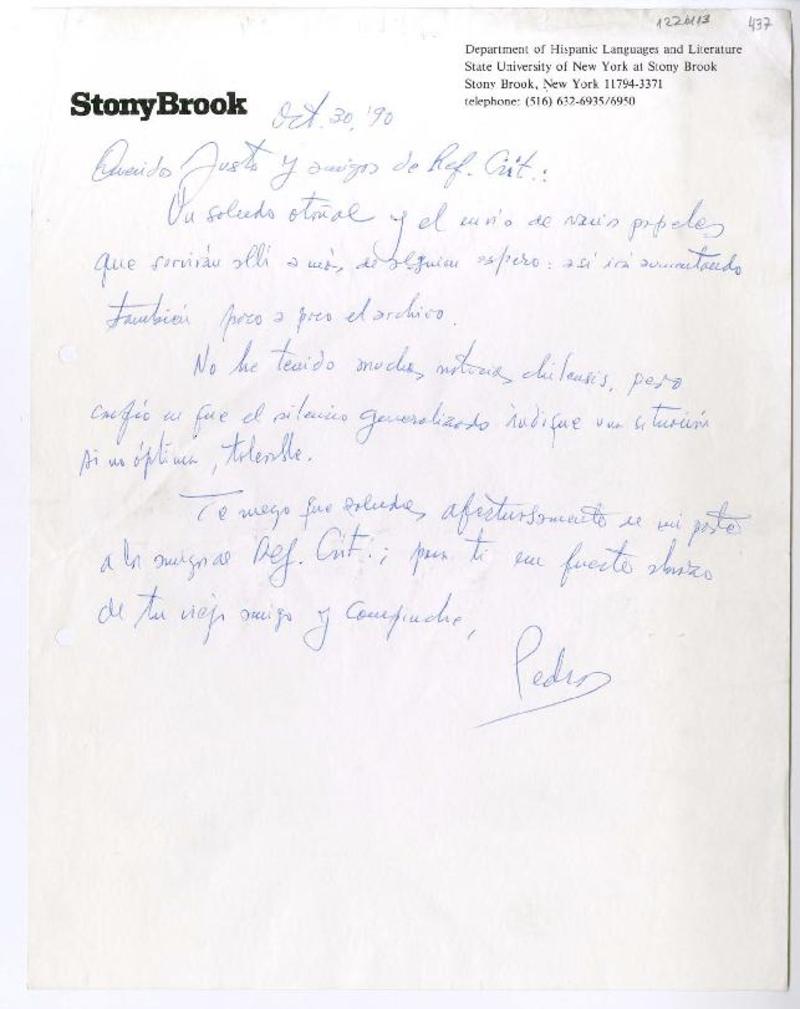 1221113 437
Department of Hispanic Languages and Literature
State University of New York at Stony Brook
Stony Brook, New York 11794-3371
telephone: (516) 632-6935/6950
StonyBrook
Oct. 30, '90
Queridos Justo y amigos de Ref. Crít.:
Un saludo otoñal y el envío de varios papeles
que servirán allí a más de alguien espero: así irá aumentando
también poco a poco el archivo.
No he tenido muchas noticias chilensis, pero
confío en que el silencio generalizado indique una situación
si no óptima, tolerable.
Te ruego que saludes afectuosamente de mi parte
a los amigos de Ref. Crít.; para ti un fuerte abrazo
de tu viejo amigo y compinche,
Pedro